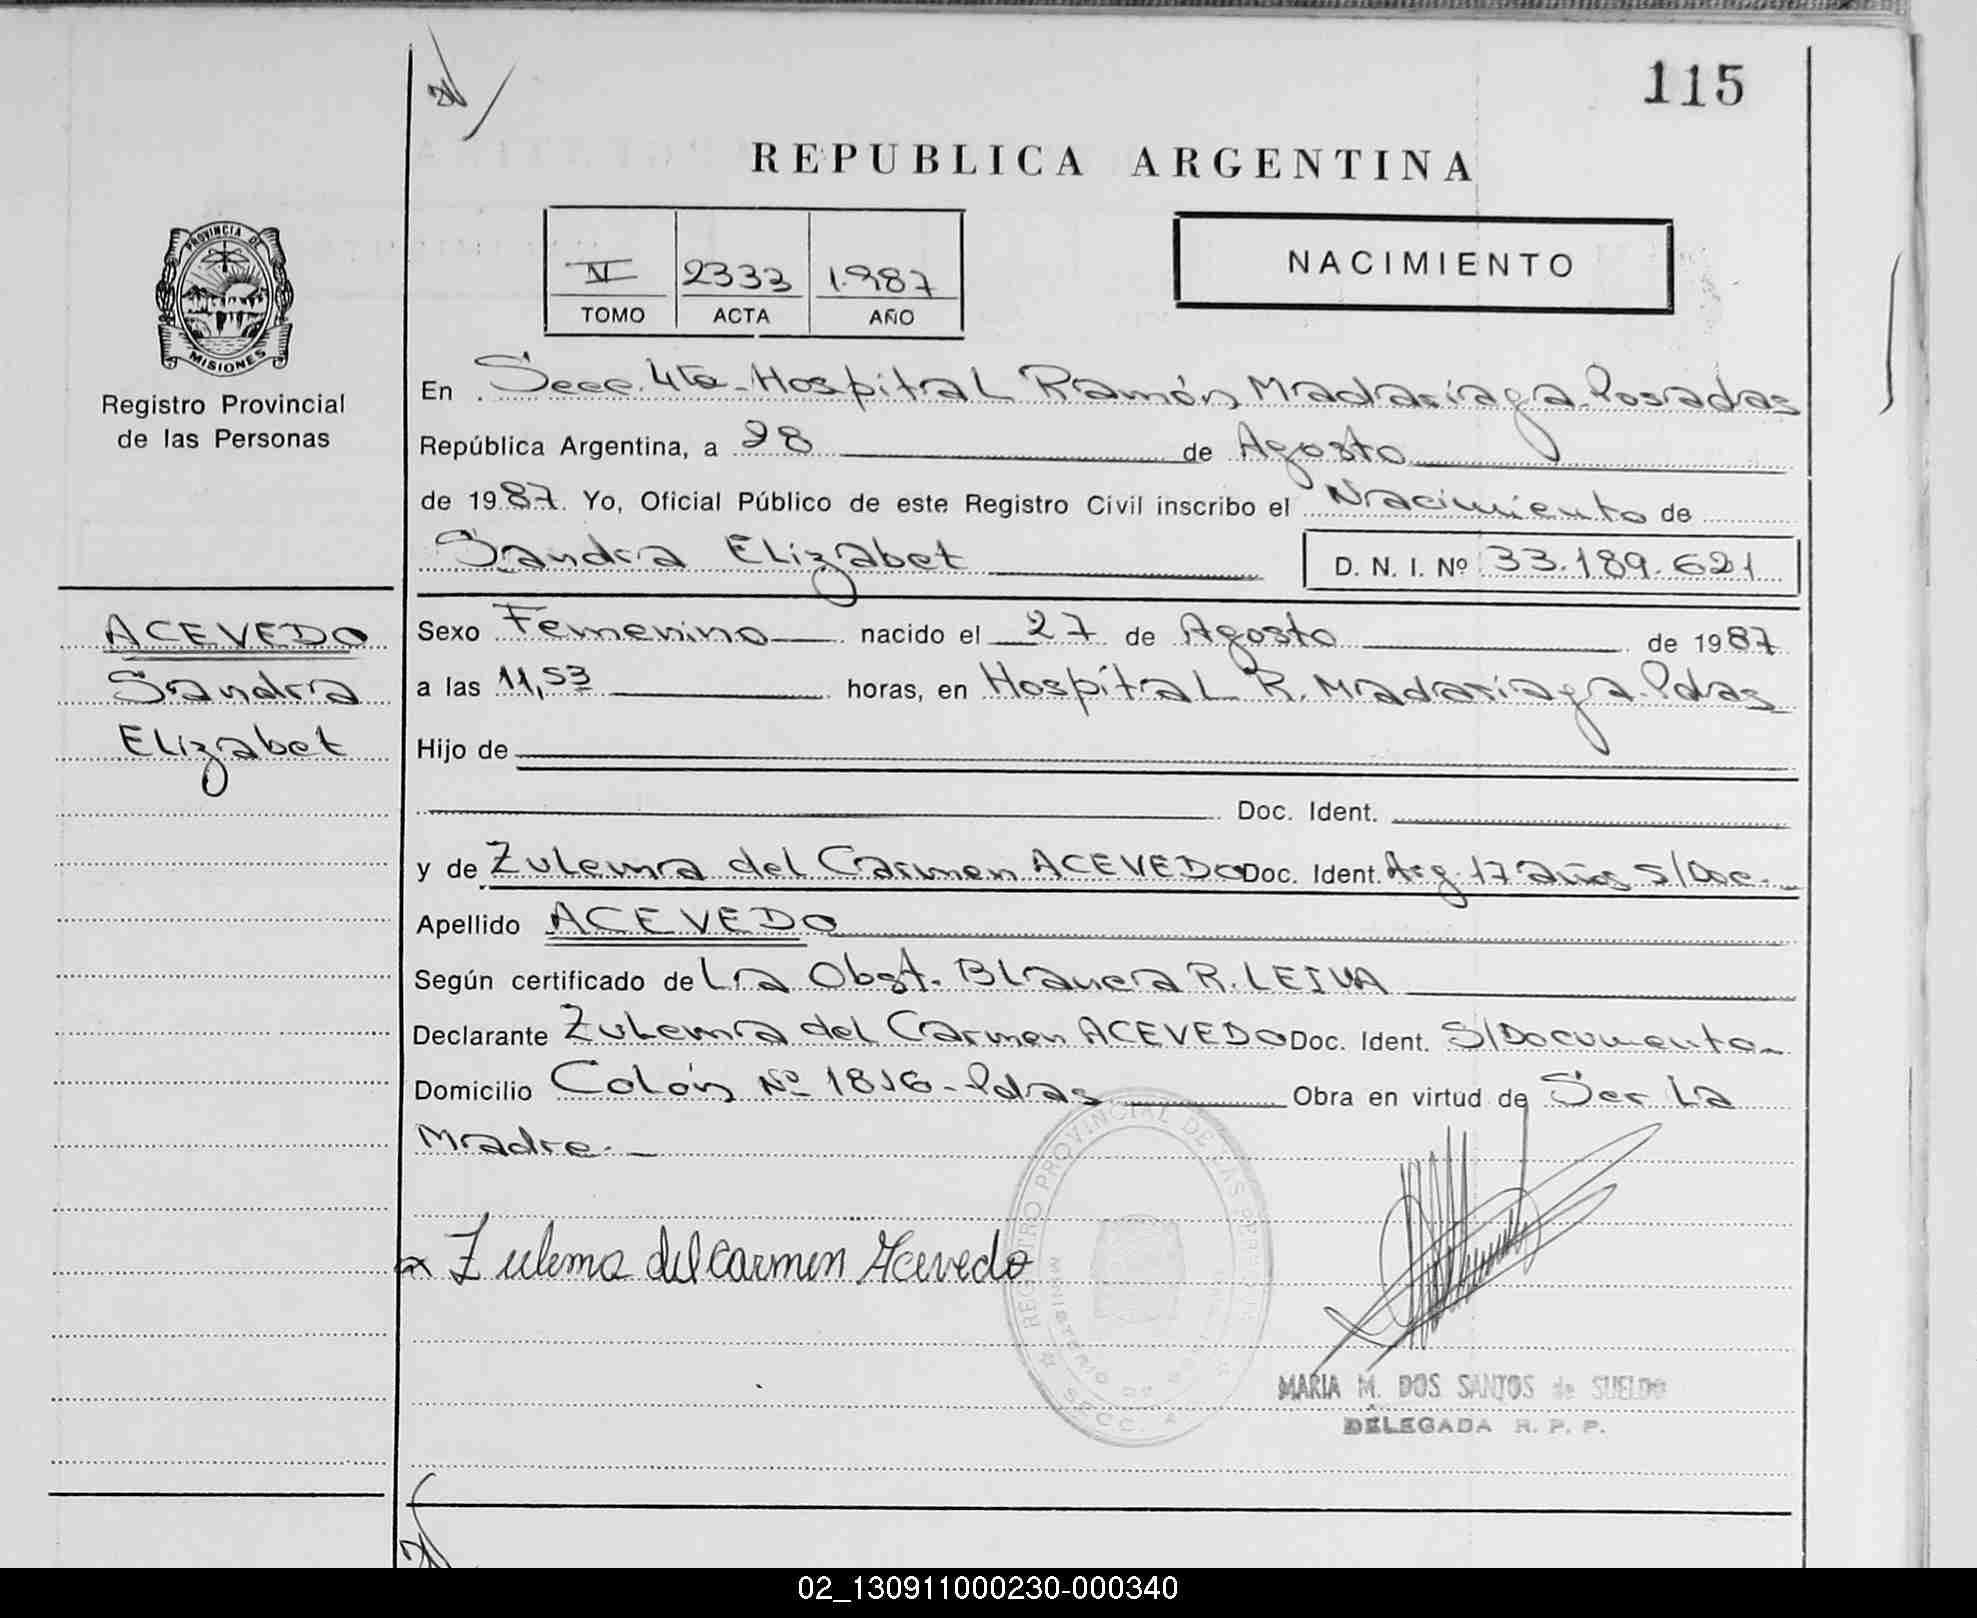 115
REPUBLICA ARGENTINA
IV 2333 1.987
TOMO ACTA AÑO
NACIMIENTO
PROVINCIA DE MISIONES
Registro Provincial
de las Personas
En Secc. 4ta - Hospital Ramón Madariaga - Posadas
República Argentina, a 28 de Agosto
de 1987. Yo, Oficial Público de este Registro Civil inscribo el Nacimiento de
Sandra Elizabet D. N. I. Nº 33.189.621
ACEVEDO
Sandra
Elizabet
Sexo Femenino nacido el 27 de Agosto de 1987
a las 11,53 horas, en Hospital R. Madariaga. Pdas
Hijo de
Doc. Ident.
y de Zulema del Carmen ACEVEDO Doc. Ident. Arg. 17 años S/Doc.
Apellido ACEVEDO
Según certificado de La Obst. Blanca R. LEIVA
Declarante Zulema del Carmen ACEVEDO Doc. Ident. S/Documento
Domicilio Colón Nº 1816 - Pdas Obra en virtud de Ser La
Madre.
x Zulema del Carmen Acevedo
REGISTRO PROVINCIAL DE LAS PERSONAS
MINISTERIO DE
SECC.
MARIA M. DOS SANTOS de SUELDO
DELEGADA R. P. P.
02_130911000230-000340